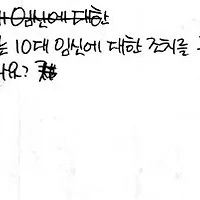 임신에 대한
는 10대 임신에 대한 조치를
나요?